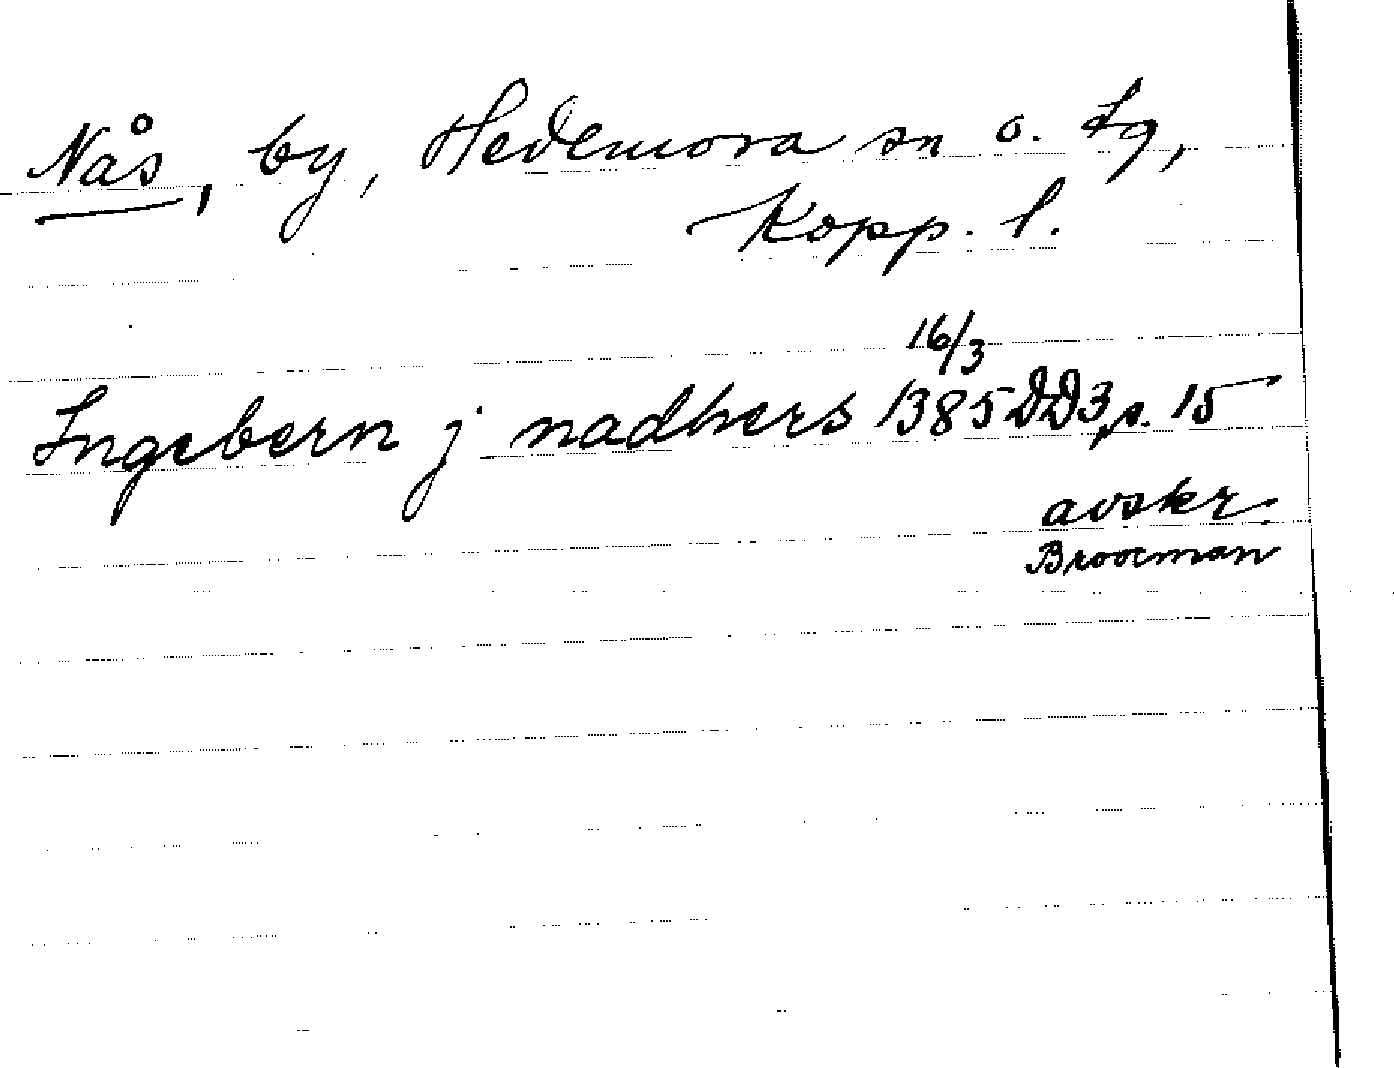 Nås, by, Hedemora sn o. tg,
Kopp. l.
Ingebern j nadhers 16/3 1385 DD3, s. 15
avskr.
Broocman